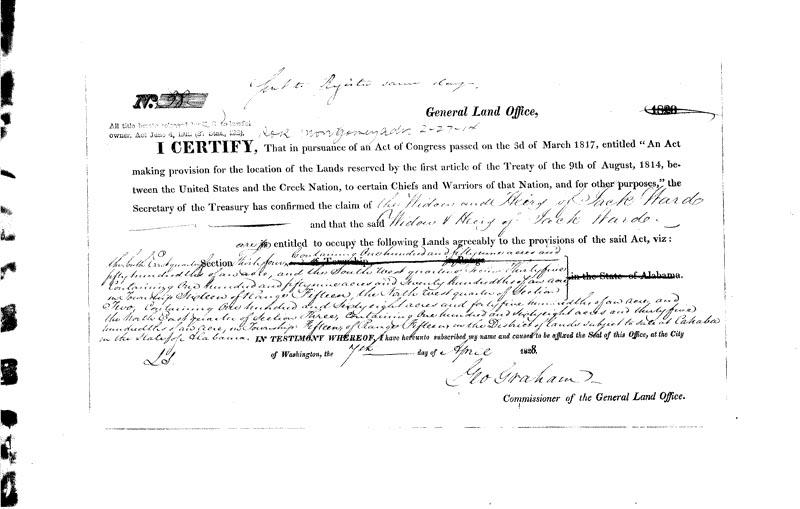 Sent to Register same day.
No. 38
General Land Office, 1820
All title
owner, Act June 4,
2-27-14
I CERTIFY, That in pursuance of an Act of Congress passed on the 3d of March 1817, entitled "An Act
making provision for the location of the Lands reserved by the first article of the Treaty of the 9th of August, 1814, be-
tween the United States and the Creek Nation, to certain Chiefs and Warriors of that Nation, and for other purposes," the
Secretary of the Treasury has confirmed the claim of the Widow and Heirs of Jack Ward
and that the said Widow & Heirs of Jack Ward
are entitled to occupy the following Lands agreeably to the provisions of the said Act, viz:
the South East quarter Section Thirty four, Containing One hundred and fifty nine acres and
fifty hundredths of an acre, and the South West quarter Section Thirty five in the State of Alabama.
containing One hundred and fifty nine acres and Twenty hundredths of an acre
in Township Sixteen of Range Fifteen, the North West quarter of Section
Two, Containing One hundred and Sixty eight acres and forty five hundredths of an acre, and
the North East quarter of Section Three, containing One hundred and Sixty eight acres and thirty five
hundredths of an acre, in Township Fifteen of Range Fifteen in the District of Lands subject to sale at Cahaba
in the State of Alabama. IN TESTIMONY WHEREOF, I have hereunto subscribed my name and caused to be affixed the Seal of this Office, at the City
of Washington, the 7th day of April 1828.
Geo Graham
Commissioner of the General Land Office.